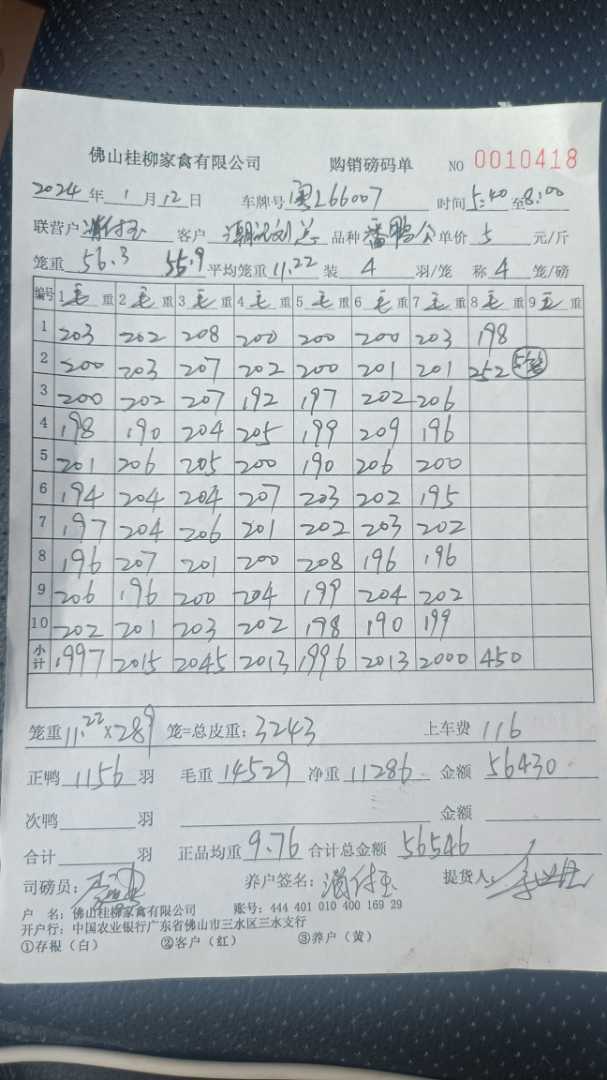 佛山桂柳家禽有限公司 购销磅码单 NO 0010418
2024 年 1 月 12 日 车牌号 粤L66007 时间 5:40 至 8:00
联营户 客户 品种 番鸭公 单价 5 元/斤
笼重 56.3 55.9 平均笼重 11.22 装 4 羽/笼 称 4 笼/磅
编号 1 毛 重 2 毛 重 3 毛 重 4 毛 重 5 毛 重 6 毛 重 7 毛 重 8 毛 重 9 毛 重
1 203 202 208 200 200 200 203 198
2 200 203 207 202 200 201 201 252
3 200 202 207 192 197 202 206
4 198 190 204 205 199 209 196
5 201 206 205 200 190 206 200
6 194 204 204 207 203 202 195
7 197 204 206 201 202 203 202
8 196 207 201 200 208 196 196
9 206 196 200 204 199 204 202
10 202 201 203 202 198 190 199
小计 1997 2015 2045 2013 1996 2013 2000 450
笼重 11.22 × 289 笼=总皮重: 3243 上车费 116
正鸭 1156 羽 毛重 14529 净重 11286 金额 56430
次鸭 羽 金额
合计 羽 正品均重 9.76 合计总金额 56546
司磅员: 养户签名: 提货人:
户 名: 佛山桂柳家禽有限公司 账号: 444 401 010 400 169 29
开户行: 中国农业银行广东省佛山市三水区三水支行
①存根（白） ②客户（红） ③养户（黄）